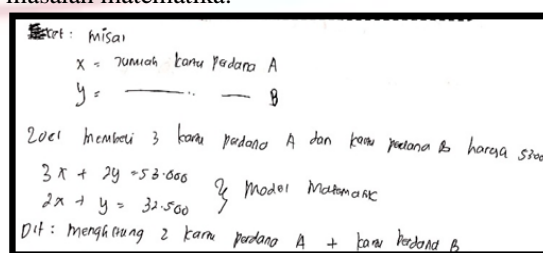 masalah matematika.
ket : misal
x = Jumlah kartu perdana A
y = —— .. — B
Zoel membeli 3 kartu perdana A dan kartu perdana B harga 5300
3x + 2y = 53.000
2x + y = 32.500 } Model Matematik
Dit : menghitung 2 kartu perdana A + kartu perdana B